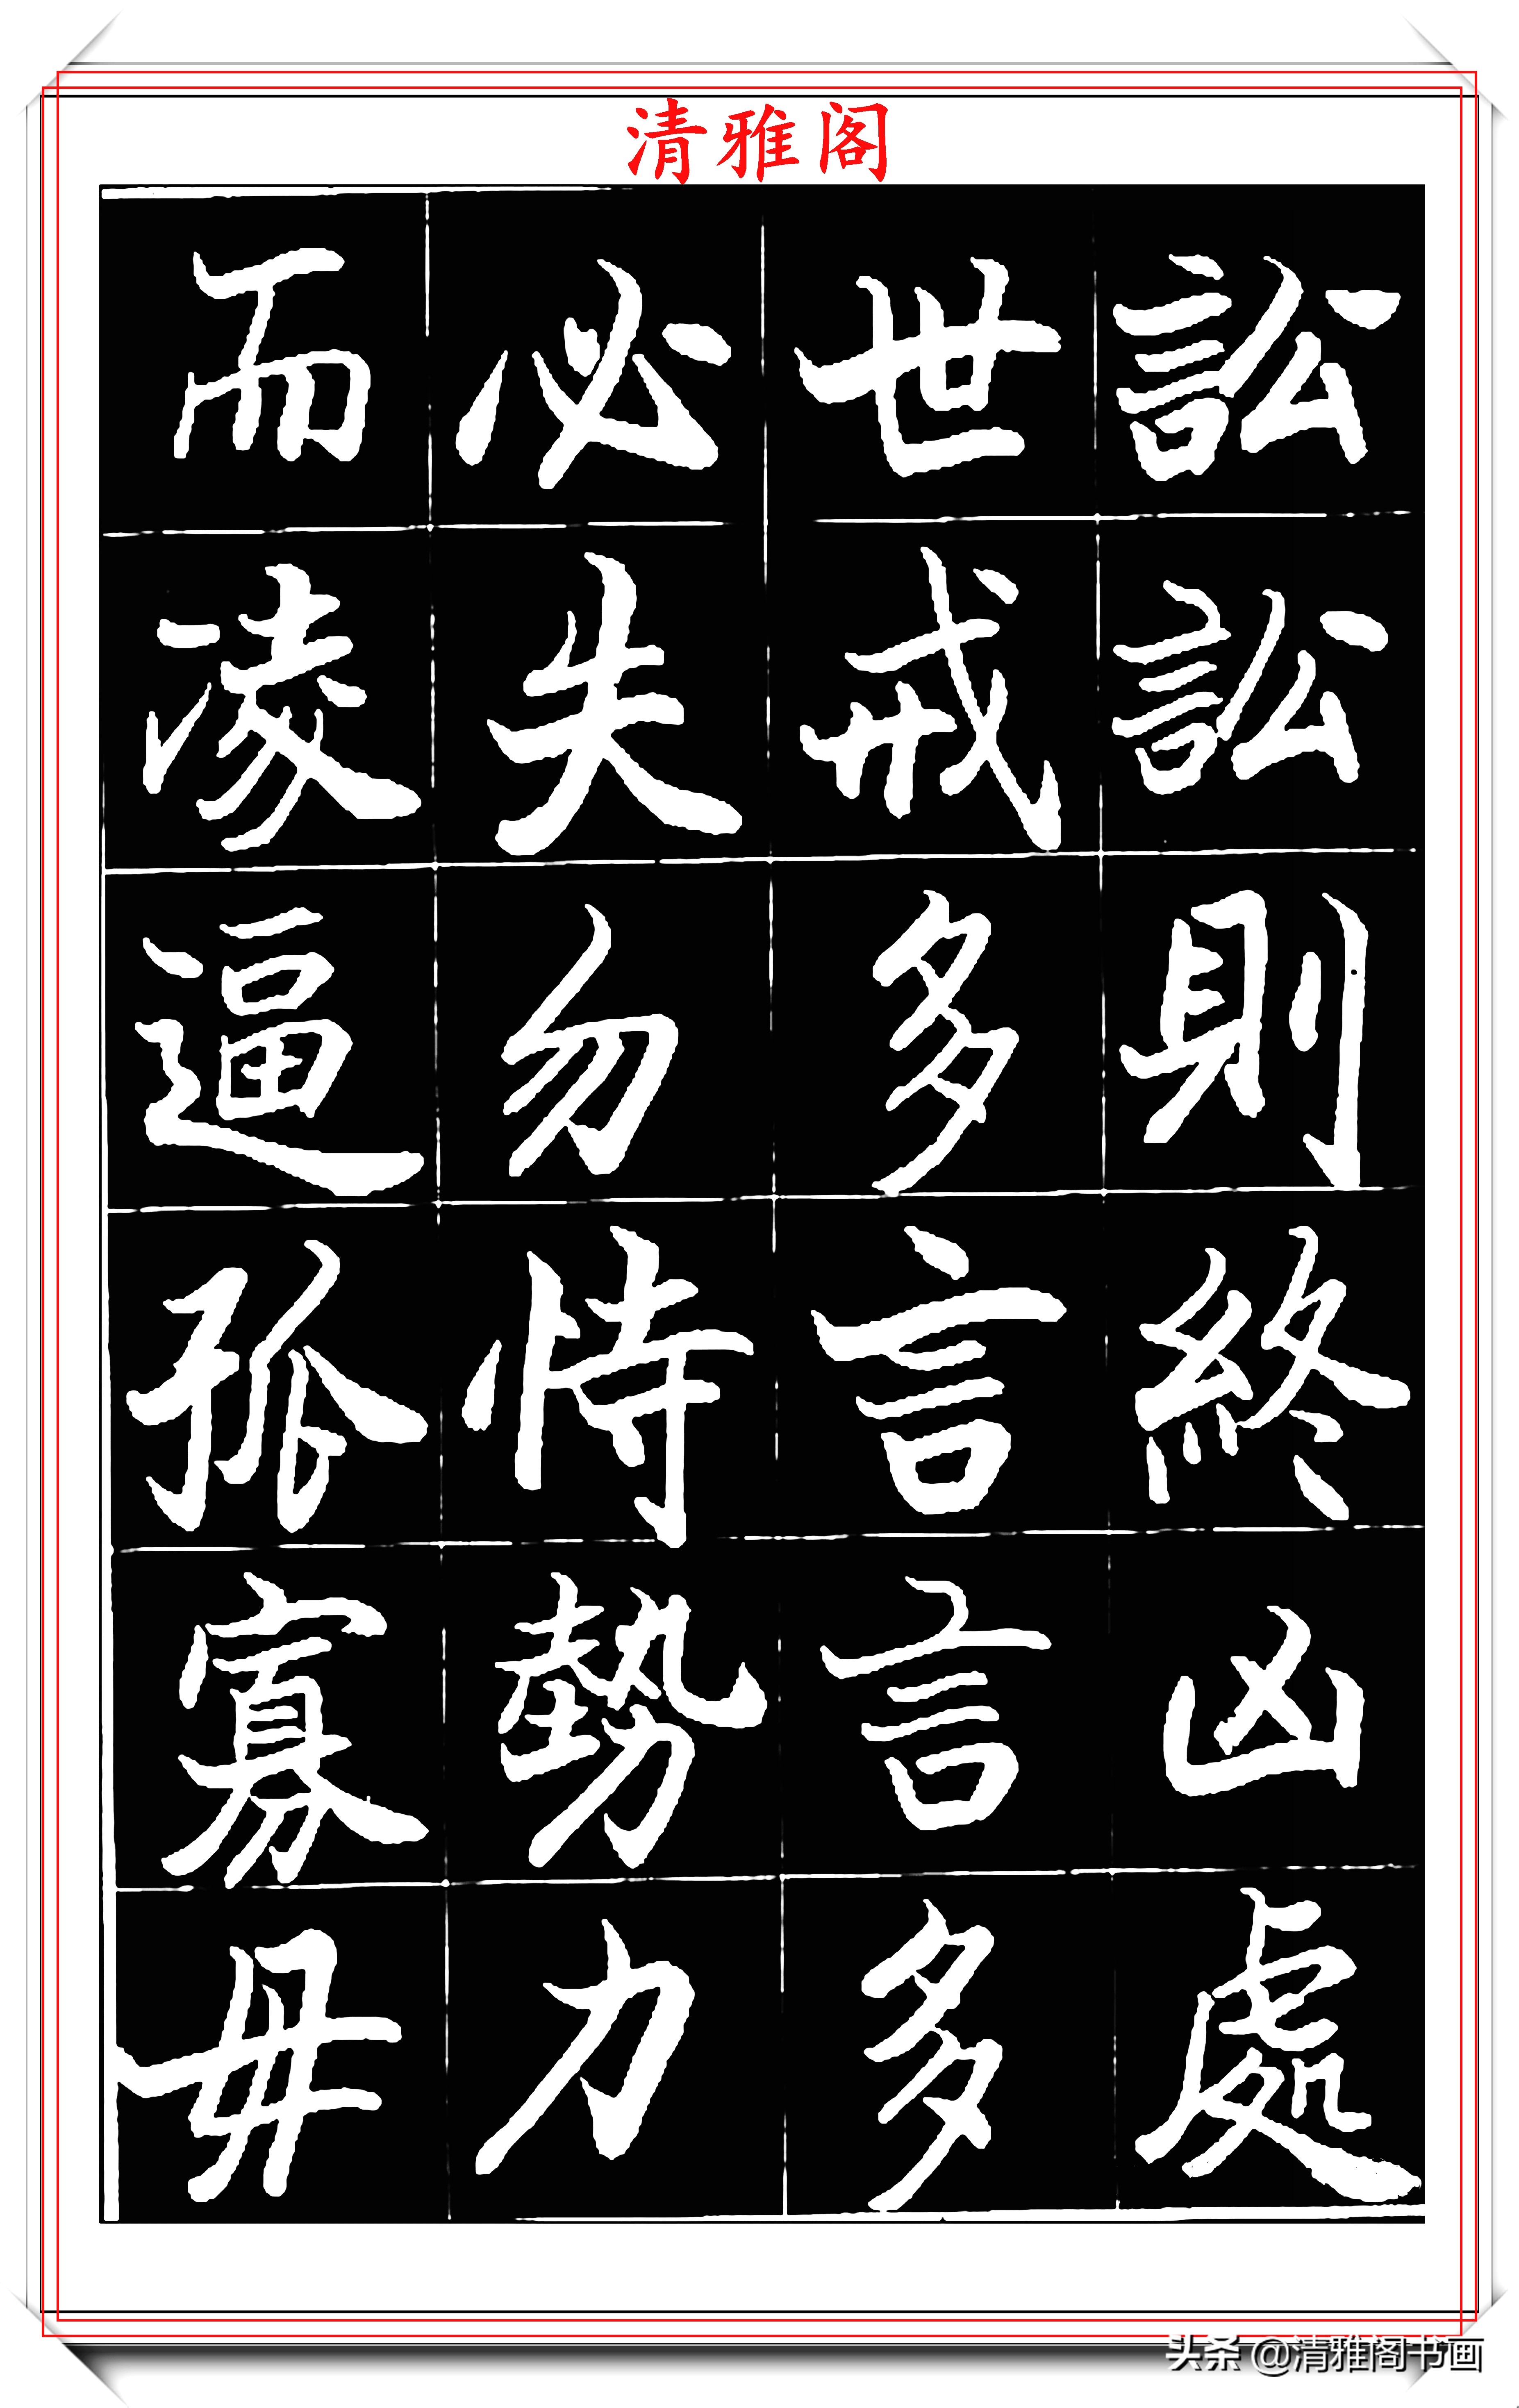 清雅阁
訟訟則終凶處
世戒多言言多
必失勿恃勢力
而凌逼孤寡毋
头条 @清雅阁书画